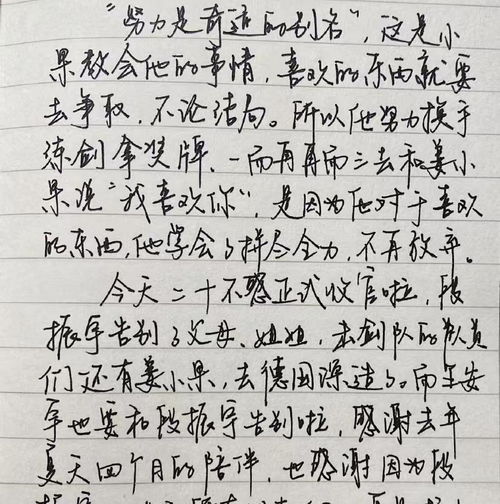 “努力是奇迹的别名”，这是小
果教会他的事情，喜欢的东西就要
去争取，不论结局。所以他努力换手
练剑拿奖牌，一而再再而三去和姜小
果说“我喜欢你”，是因为他对于喜欢
的东西，他学会了拼尽全力，不再放弃。
今天二十不惑正式收官啦，段
振宇告别了父母、姐姐，击剑队的队员
们还有姜小果，去德国深造了。而牟安
宇也要和段振宇告别啦，感谢去年
夏天四个月的陪伴，也感谢因为段
振宇